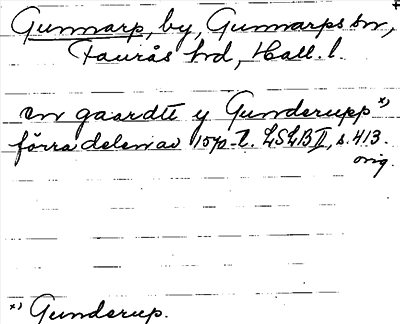 Gunnarp, by, Gunnarps sn,
Faurås hd, Hall. l.
en gaardtt y Gunderupp *)
förra delen av 1570-t. LSLB II, s. 413.
orig.
*) Gunderup.